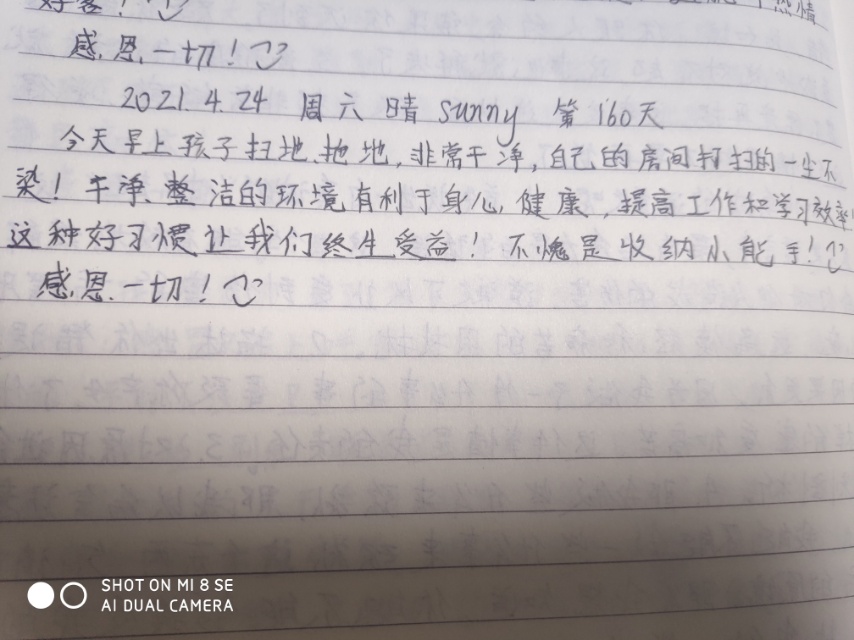 好客!
感恩一切!
2021.4.24 周六 晴 sunny 第160天
今天早上孩子扫地、拖地,非常干净,自己的房间打扫的一尘不
染!干净、整洁的环境有利于身心健康,提高工作和学习效率!
这种好习惯让我们终生受益!不愧是收纳小能手!
感恩一切!
SHOT ON MI 8 SE
AI DUAL CAMERA